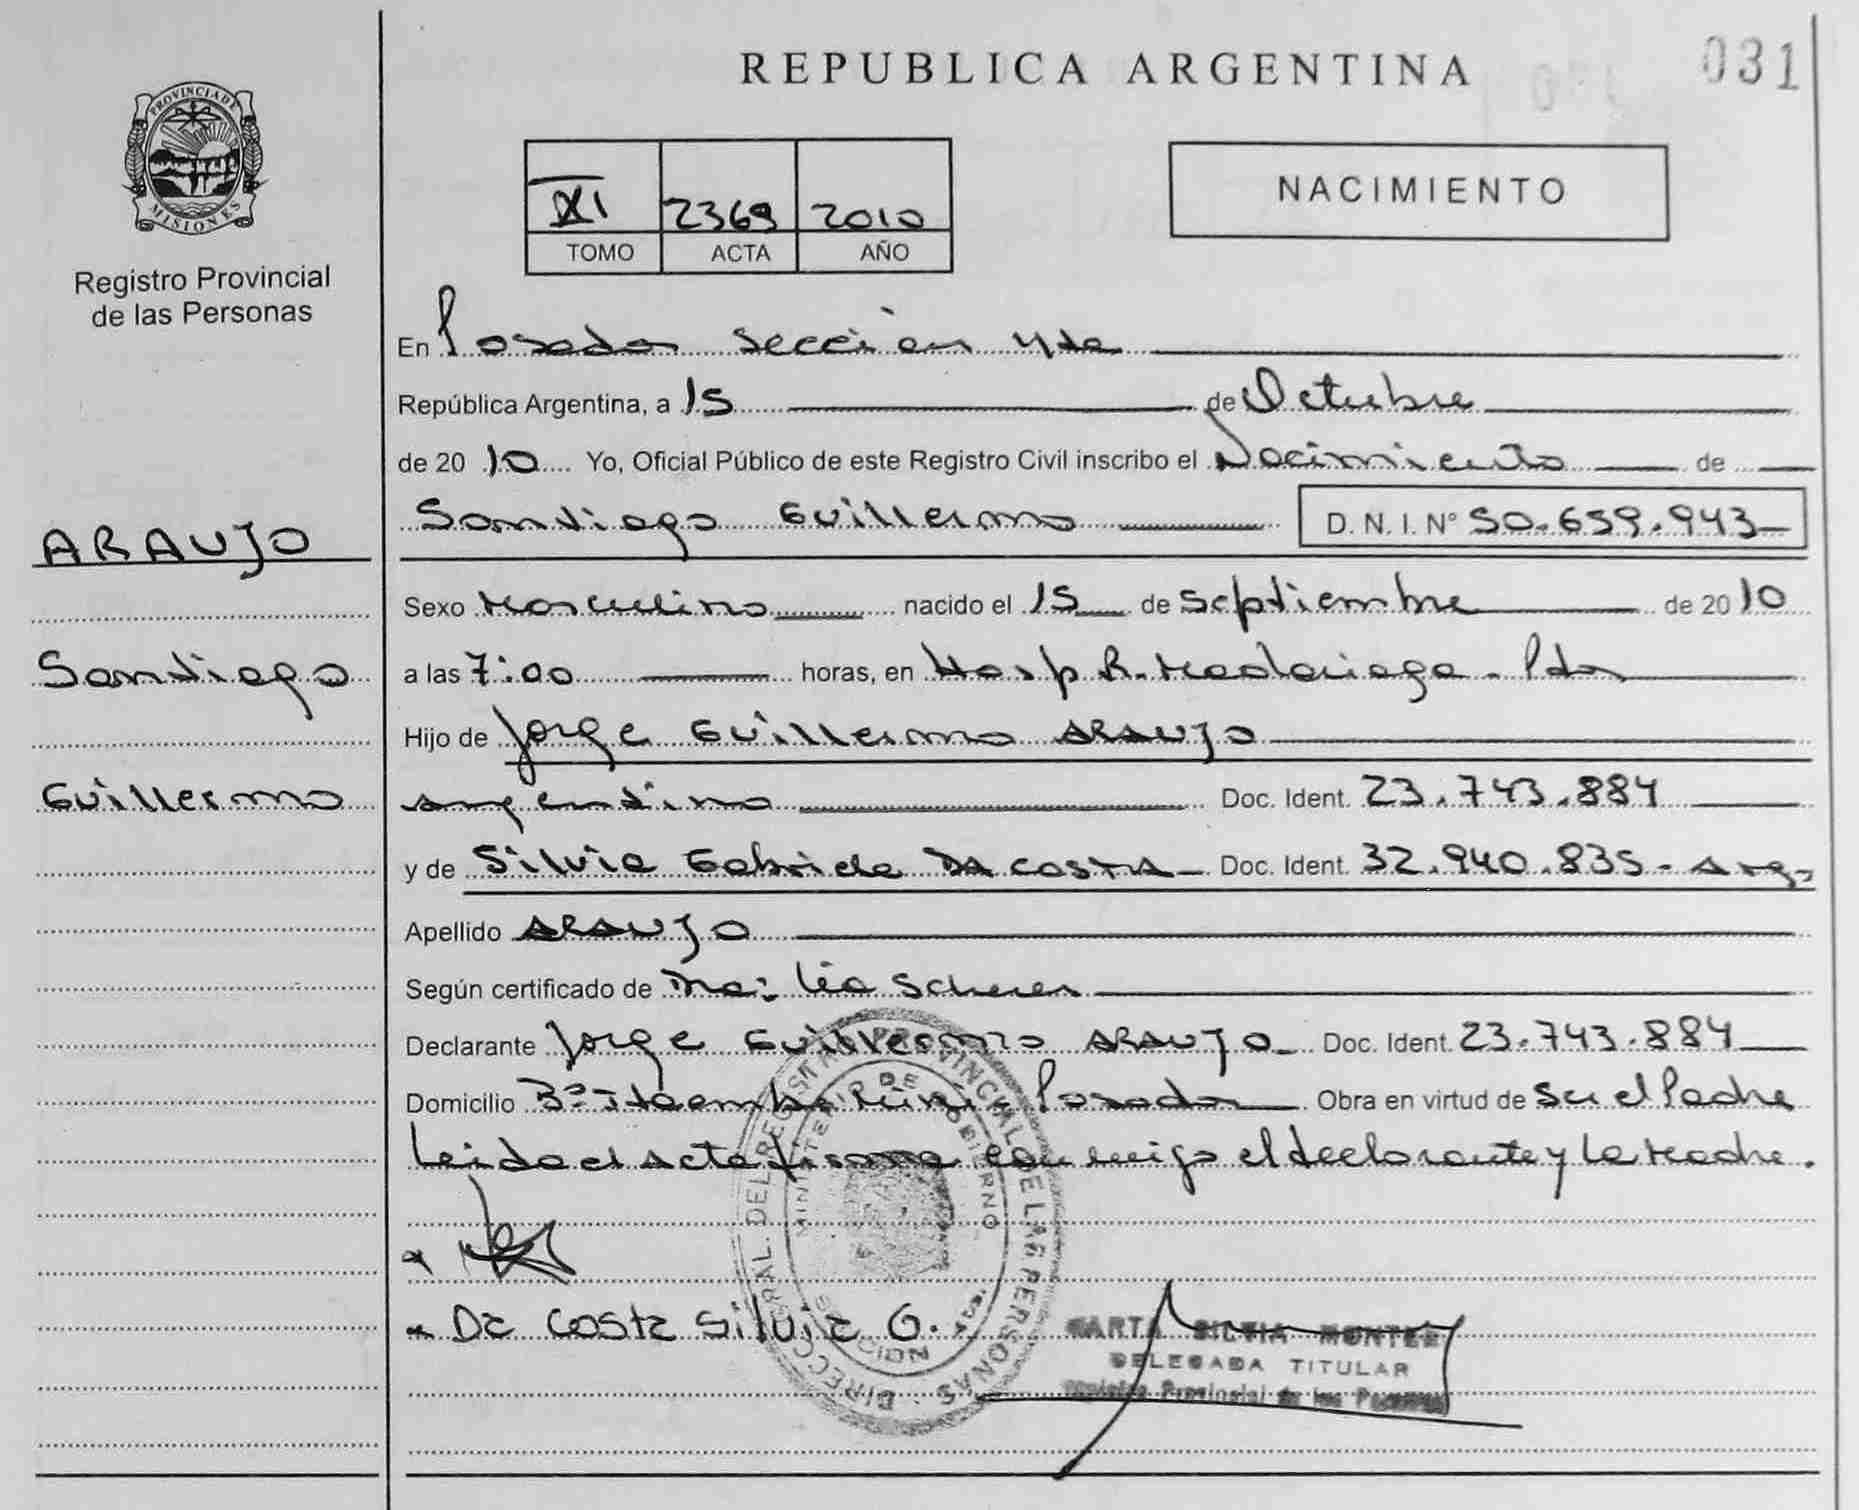 REPUBLICA ARGENTINA
031
PROVINCIA DE
MISIONES
Registro Provincial
de las Personas
XI 2369 2010
TOMO ACTA AÑO
NACIMIENTO
En Posadas sección 4ta
República Argentina, a 15 de Octubre
de 20 10 Yo, Oficial Público de este Registro Civil inscribo el Nacimiento de
Santiago Guillermo D. N. I. Nº 50.659.943
ARAUJO
Santiago
Guillermo
Sexo Masculino nacido el 15 de Septiembre de 20 10
a las 7:00 horas, en Hosp R. Madariaga - Pdas
Hijo de Jorge Guillermo ARAUJO
argentino Doc. Ident. 23.743.884
y de Silvia Gabriela DA COSTA Doc. Ident. 32.940.835 - Arg.
Apellido ARAUJO
Según certificado de Lia Scherer
Declarante Jorge Guillermo ARAUJO Doc. Ident. 23.743.884
Domicilio Bº Itaembé Posadas Obra en virtud de Ser el Padre
Leida el Acta firma conmigo el declarante y la Madre.
Da Costa Silvia G.
DIRECC GRAL. DEL REGISTRO PROVINCIAL DE LAS PERSONAS
MINISTERIO DE GOBIERNO
MARTA SILVIA
DELEGADA TITULAR
Registro Provincial de las Personas